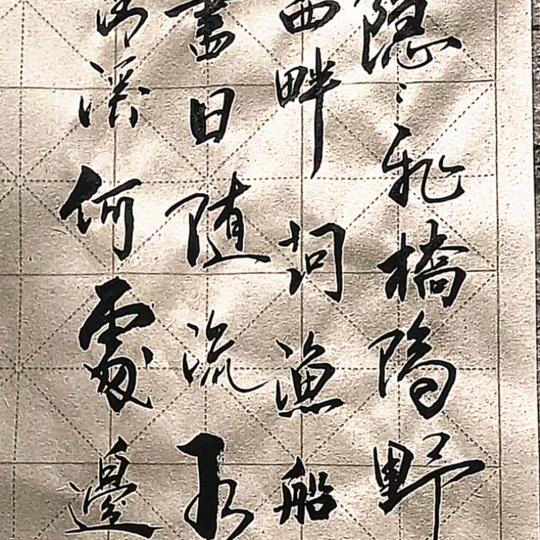 隱〻飛橋隔野
西畔问漁船
盡日随流水
溪何處邊